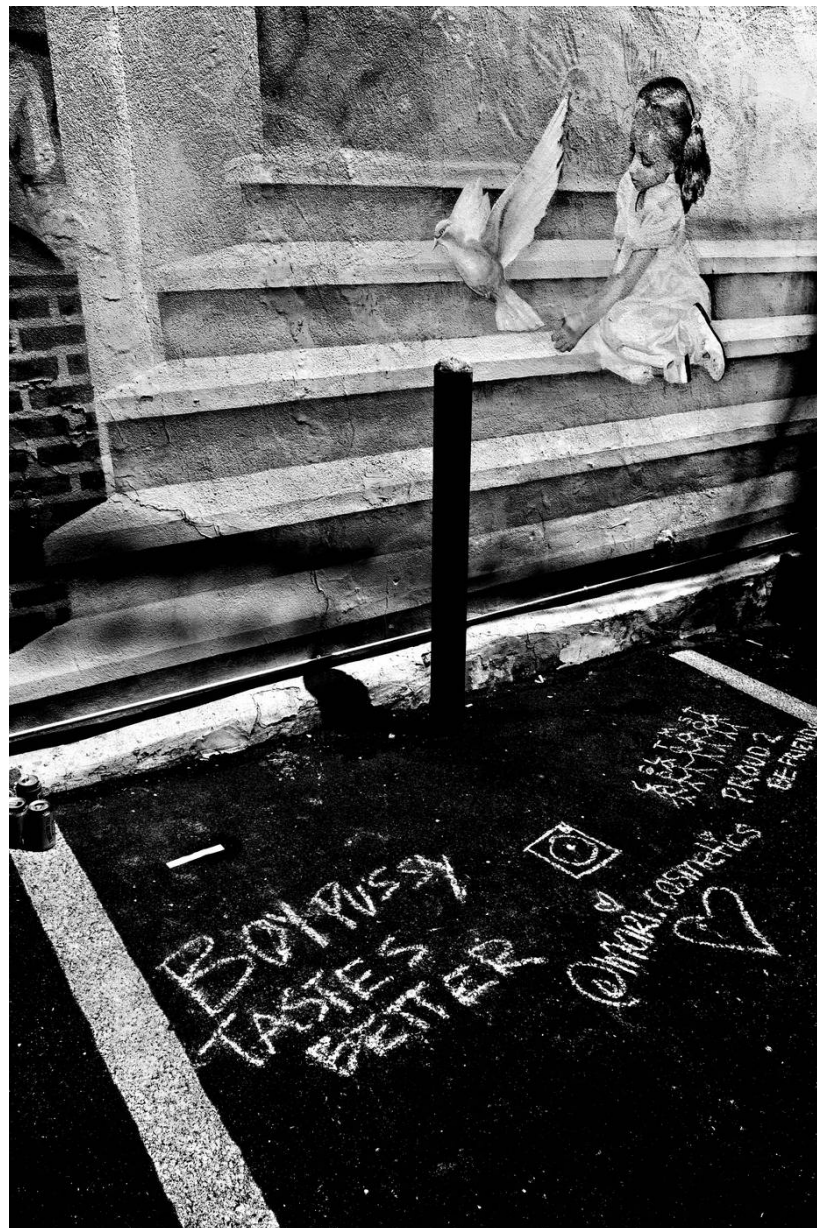 BOY PUSSY
TASTES
BETTER
@mari.cosmetics
PROUD 2
BE